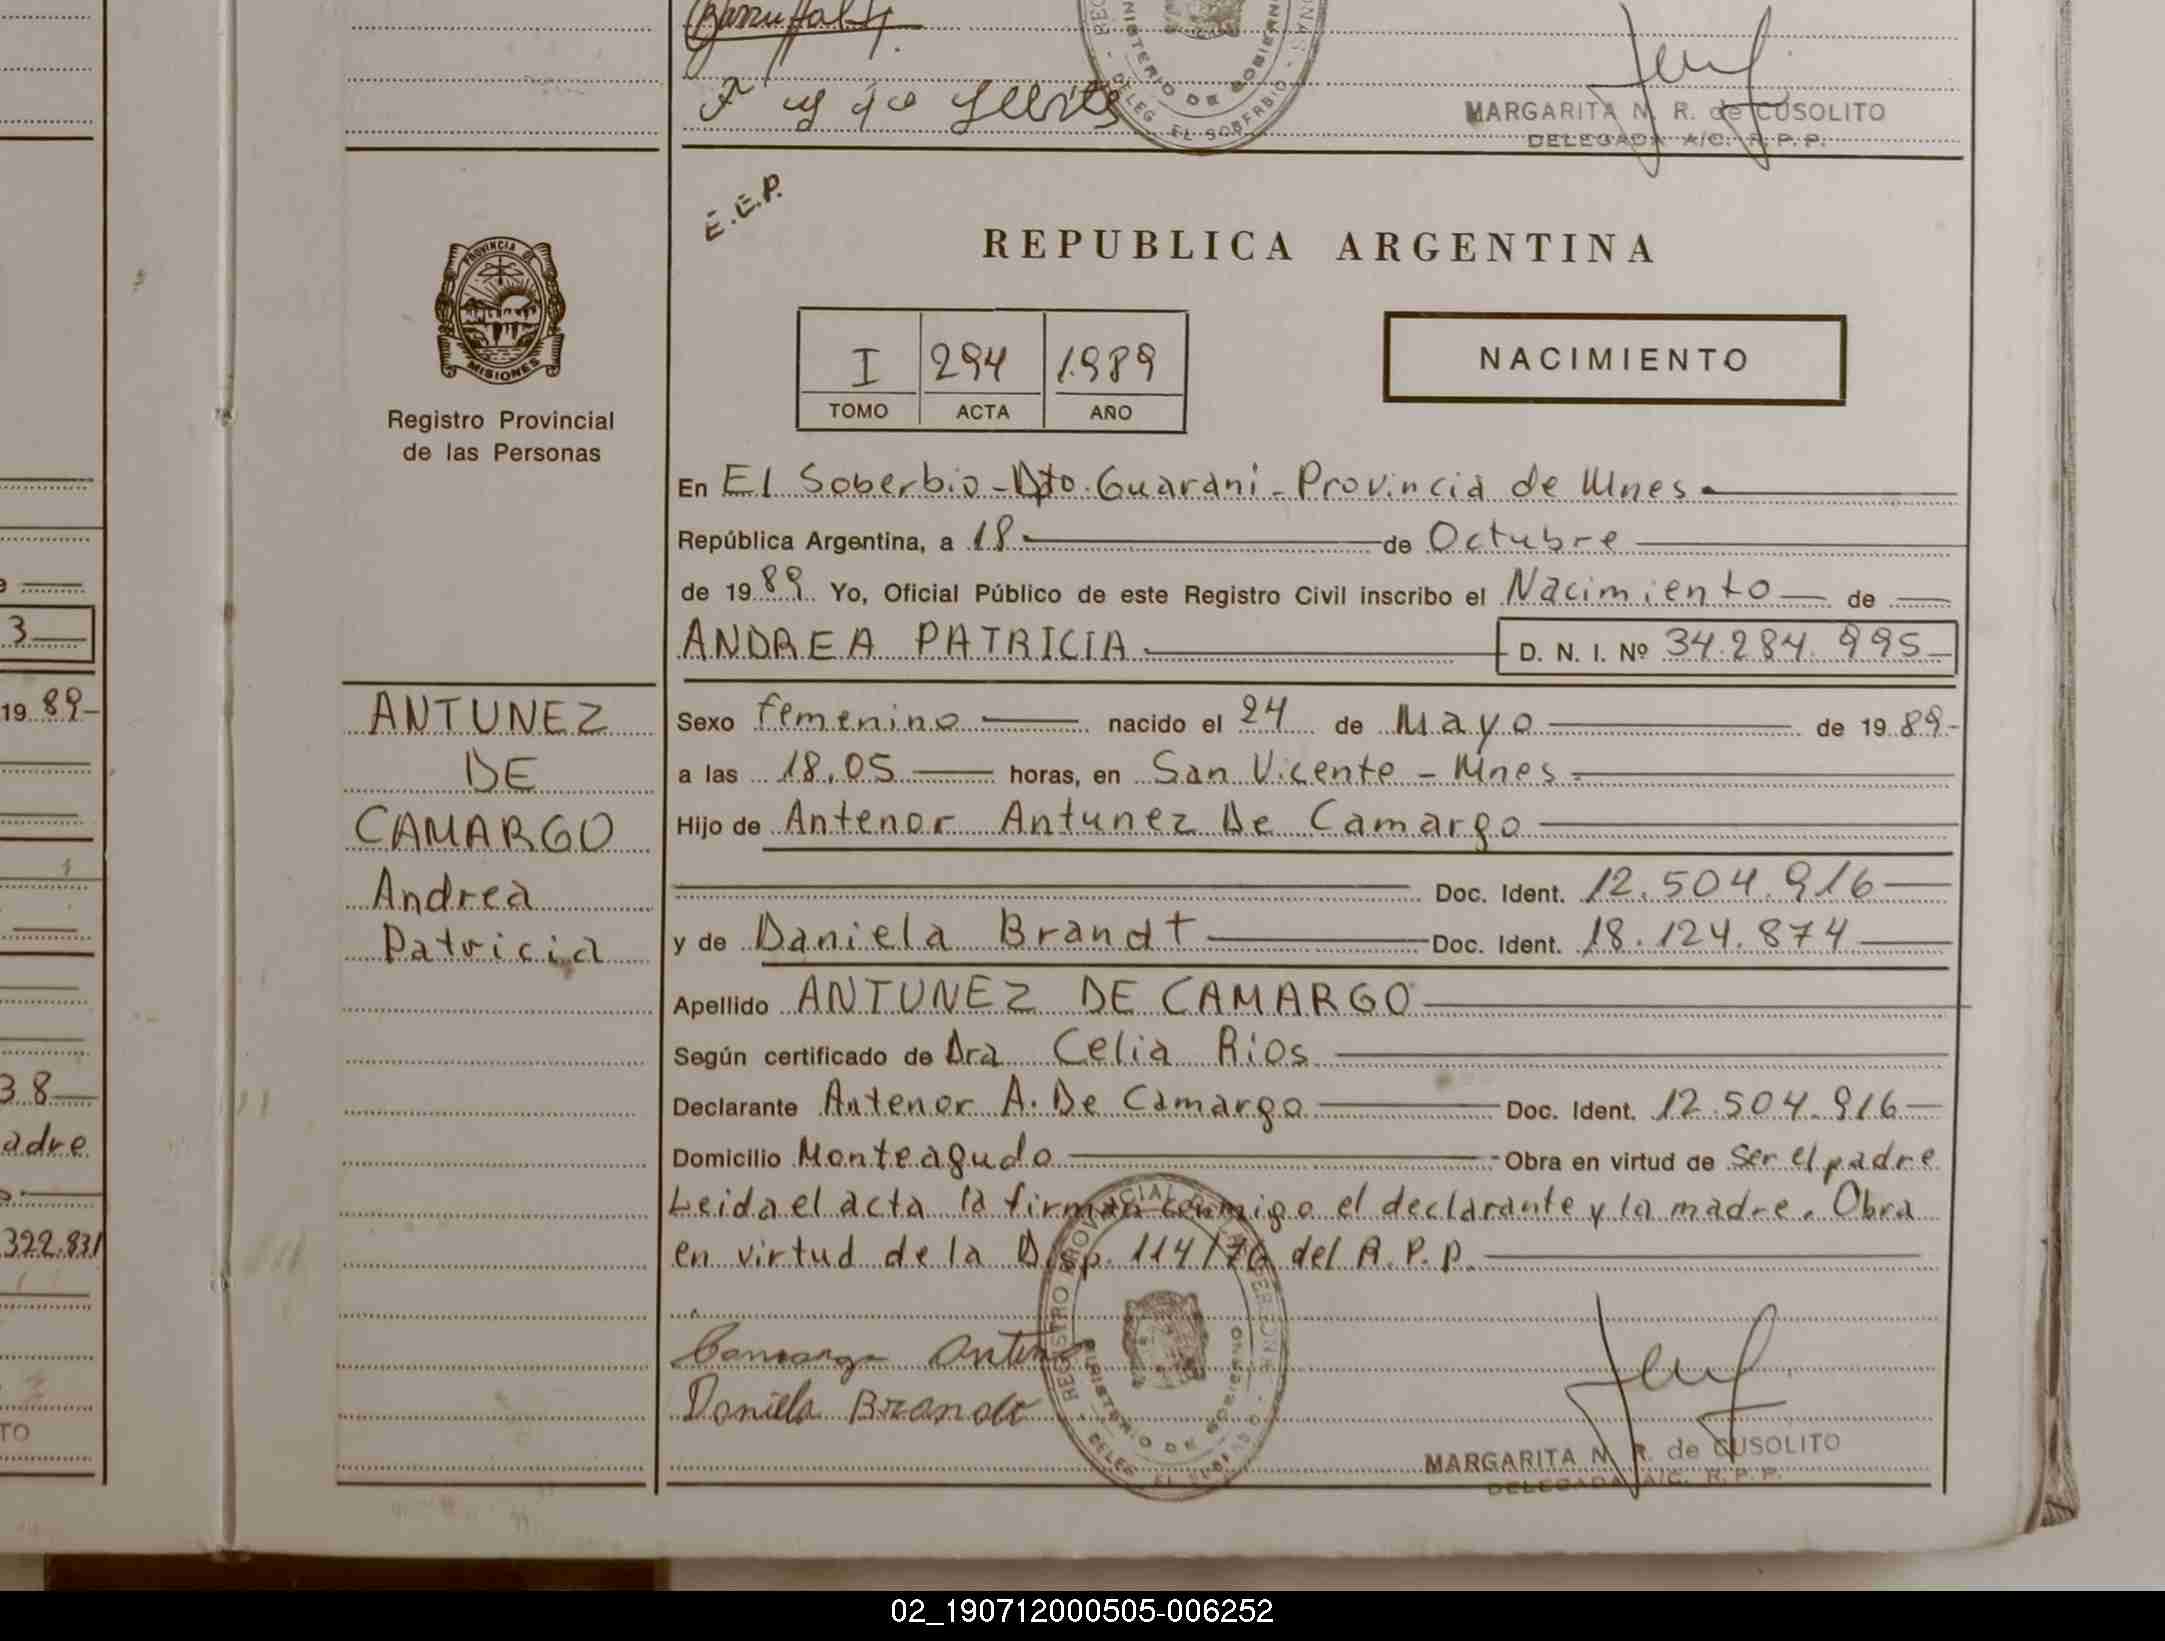 MARGARITA N. R. de CUSOLITO
DELEGADA A/C. R. P. P.
E.E.P.
REPUBLICA ARGENTINA
PROVINCIA DE
MISIONES
Registro Provincial
de las Personas
I 294 1.989
TOMO ACTA AÑO
NACIMIENTO
En El Soberbio - Dto. Guaraní - Provincia de Mnes
República Argentina, a 18 de Octubre
de 1989 Yo, Oficial Público de este Registro Civil inscribo el Nacimiento de
ANDREA PATRICIA D. N. I. Nº 34.284.995
ANTUNEZ
DE
CAMARGO
Andrea
Patricia
Sexo femenino nacido el 24 de Mayo de 1989
a las 18.05 horas, en San Vicente - Mnes
Hijo de Antenor Antunez De Camargo
Doc. Ident. 12.504.916
y de Daniela Brandt Doc. Ident. 18.124.874
Apellido ANTUNEZ DE CAMARGO
Según certificado de Dra Celia Rios
Declarante Antenor A. De Camargo Doc. Ident. 12.504.916
Domicilio Monteagudo Obra en virtud de Ser el padre
Leida el acta la firman conmigo el declarante y la madre. Obra
en virtud de la Disp. 114/76 del R.P.P.
Camargo
Daniela Brandt
MARGARITA N. R. de CUSOLITO
DELEGADA A/C. R. P. P.
3
1989
38
adre
322.831
TO
02_190712000505-006252